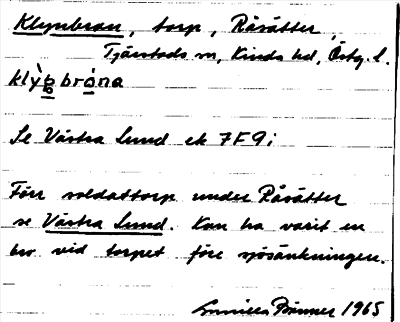 Klynbron, torp, Råsätter,
Tjärstads sn, Kinds hd, Östg. l.
klỳb̲bro̲na
Se Västra Lund ek 7F9i
Förr soldattorp under Råsätter
se Västra Lund. Kan ha varit en
bro vid torpet före sjösänkningen.
1965